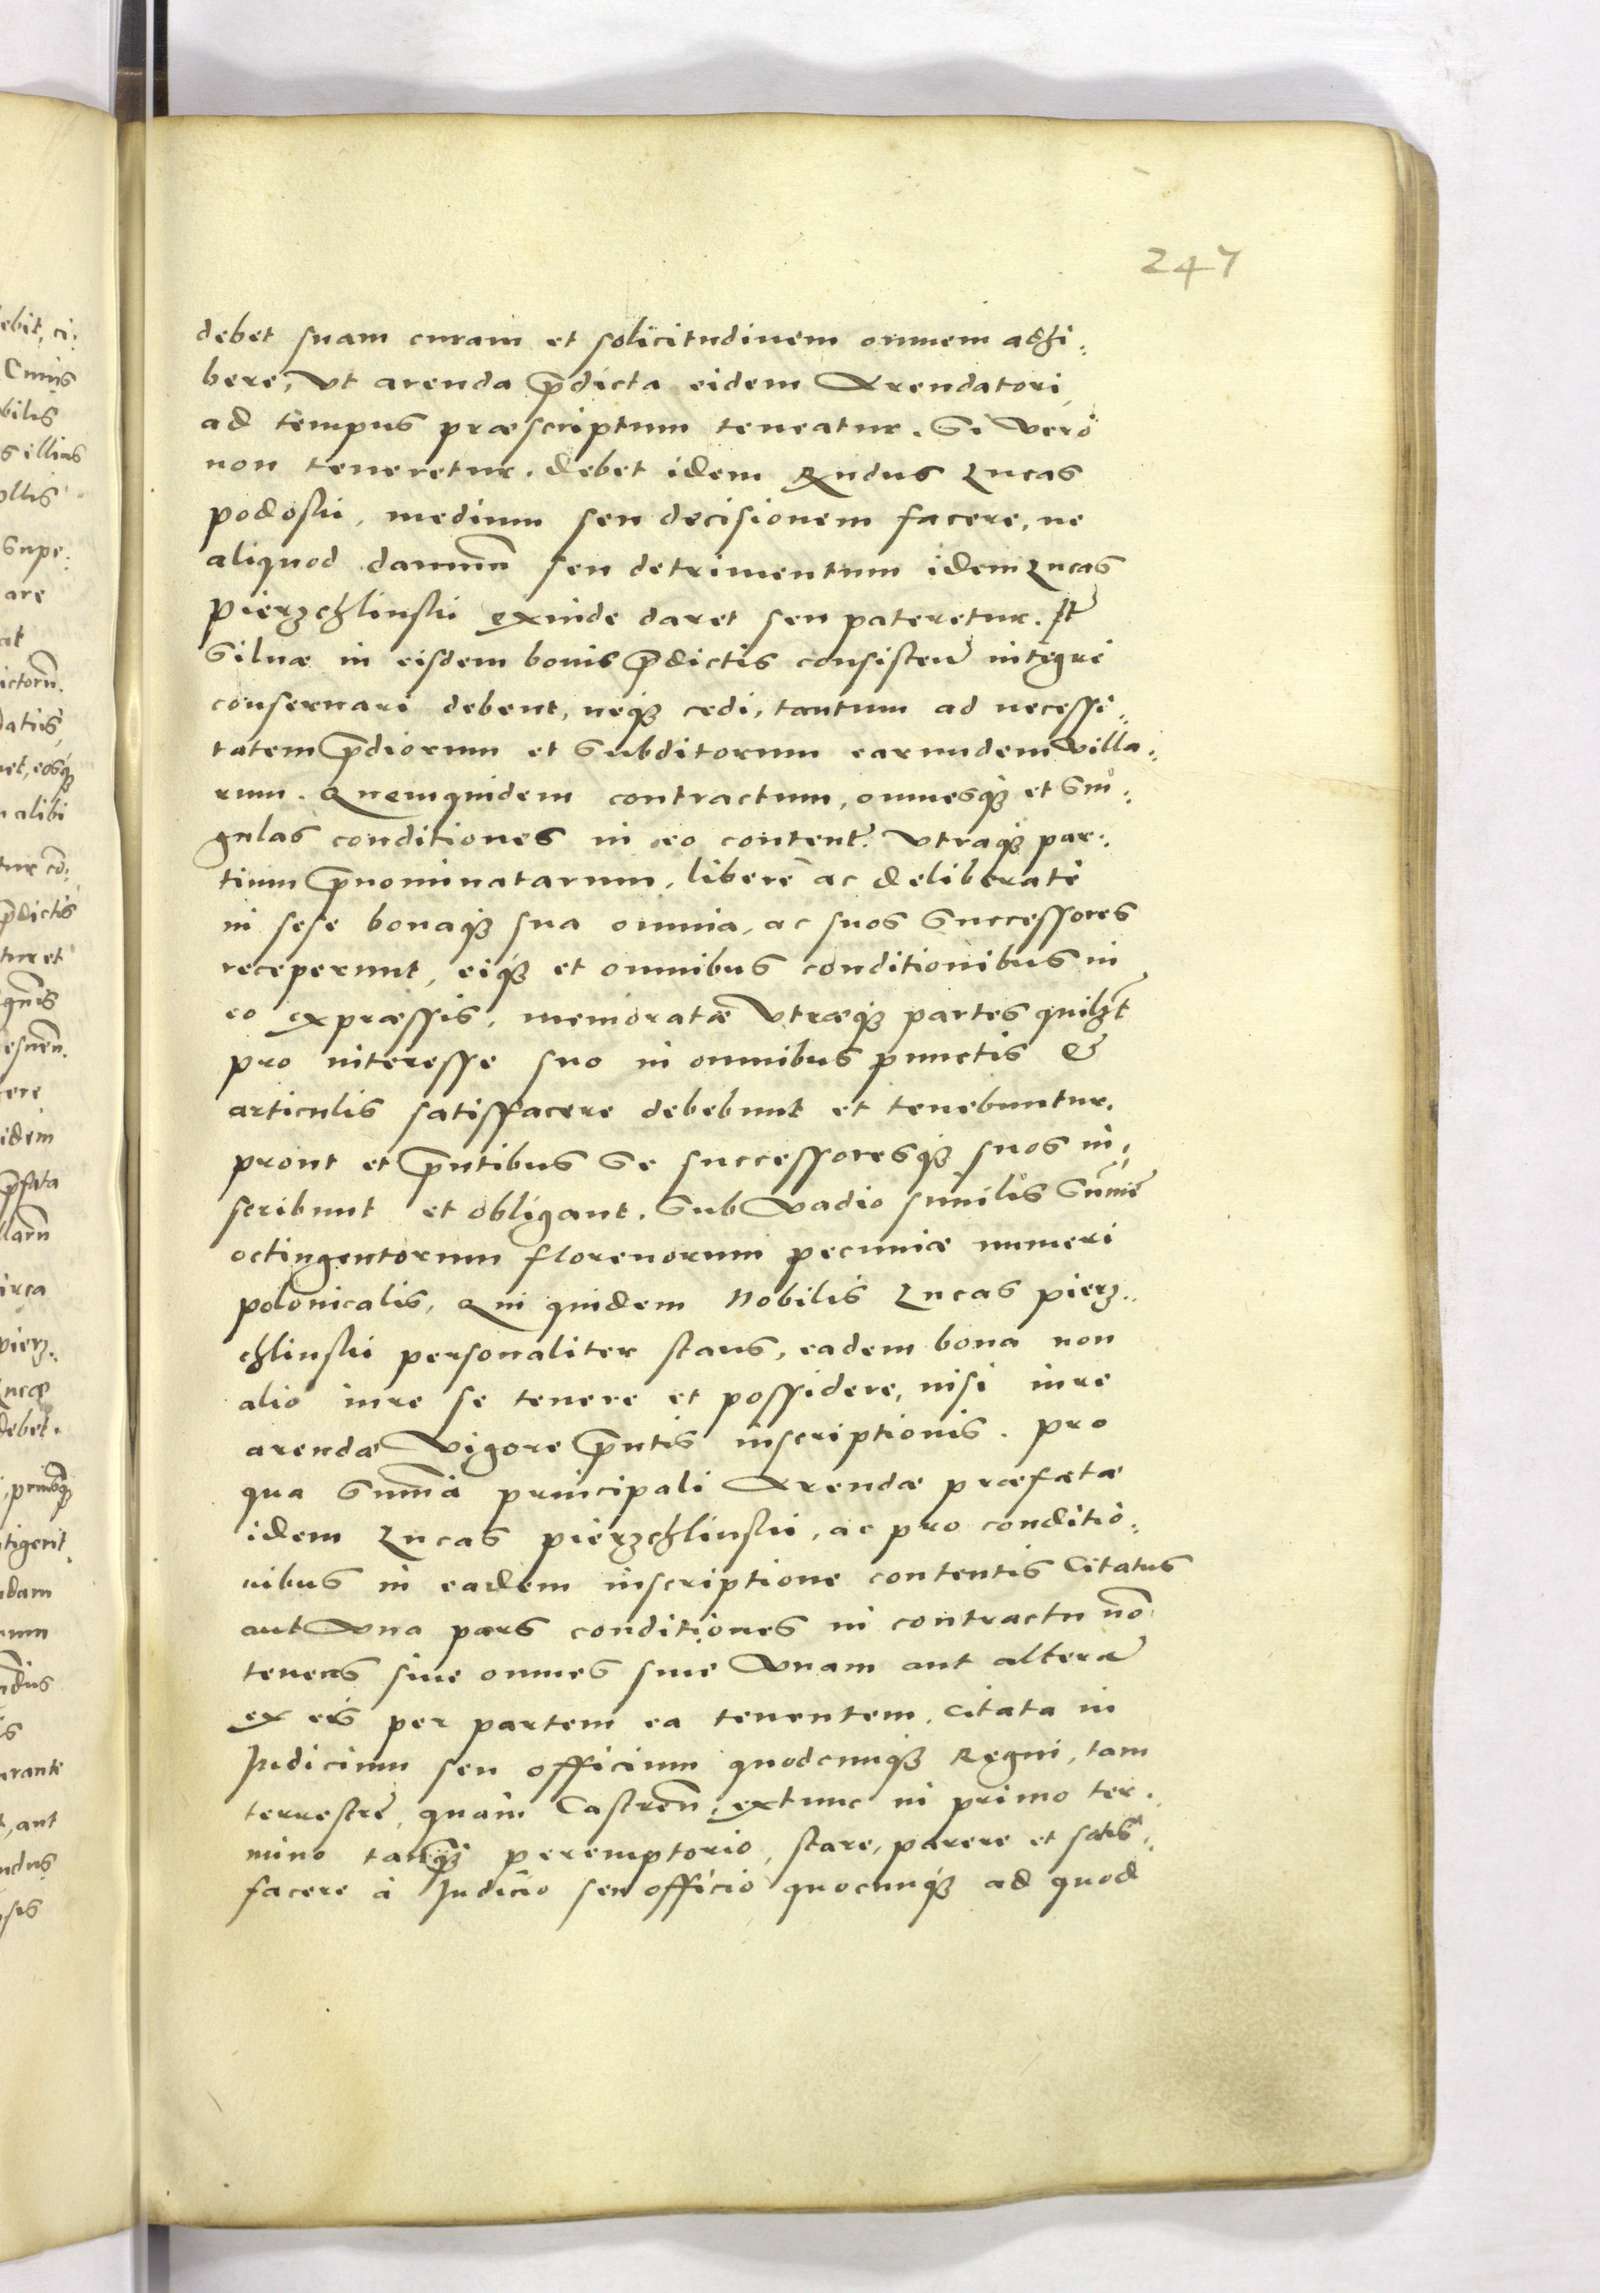 247
debet suam curam et solicitudinem omnem adhi:
bere, Vt arenda p̄dicta eidem Arendatori
ad tempus præscriptum teneatur. Si Vero
non teneretur. debet idem Rndus Lucas
podoskii, medium seu decisionem facere, ne
aliquod damnū seu detrimentum idem Lucas
Pierzchlinskii exinde daret seu pateretur. Itē
Siluæ in eisdem bonis p̄dictis consisteñ integre
conseruari debent, neqȝ cedi, tantum ad necessi:
tatem p̄diorum et Subditorum earundem Villa:
rum. Quemquidem contractum, omnesqȝ et Sin:
gulas conditiones in eo content̃. Vtraqȝ par:
tium p̄nominatarum, libere ac deliberate
in sese bonaqȝ sua omnia, ac suos Successores
receperunt, eiqȝ et omnibus conditionibus in
eo expræssis, memoratæ Vtræqȝ partes quilȝt
pro interesse suo in omnibus punctis &
articulis satisfacere debebunt et tenebuntur.
prout et p̄ntibus Se successoresqȝ suos in:
scribunt et obligant. Sub Vadio similis Sum̄e
octingentorum florenorum pecuniæ numeri
polonicalis, Qui quidem Nobilis Lucas pierz:
chlinskii personaliter stans, eadem bona non
alio iure se tenere et possidere, nisi iure
arendæ Vigore p̄ntis inscriptionis. pro
qua Sum̄a principali Arendæ præfatæ
idem Lucas pierzchlinskii, ac pro conditio:
nibus in eadem inscriptione contentis Citatus
aut Vna pars conditiones in contractu nō
tenens siue omnes siue Vnam aut alterā
ex eis per partem ea tenentem, citata in
Iudicium seu officium quodcunqȝ Regni, tam
terrestre, quam Castreñ, extunc in primo ter:
mino tanqȝ peremptorio, stare, parere et satis:
facere à Iudicio seu officio quocunqȝ ad quod